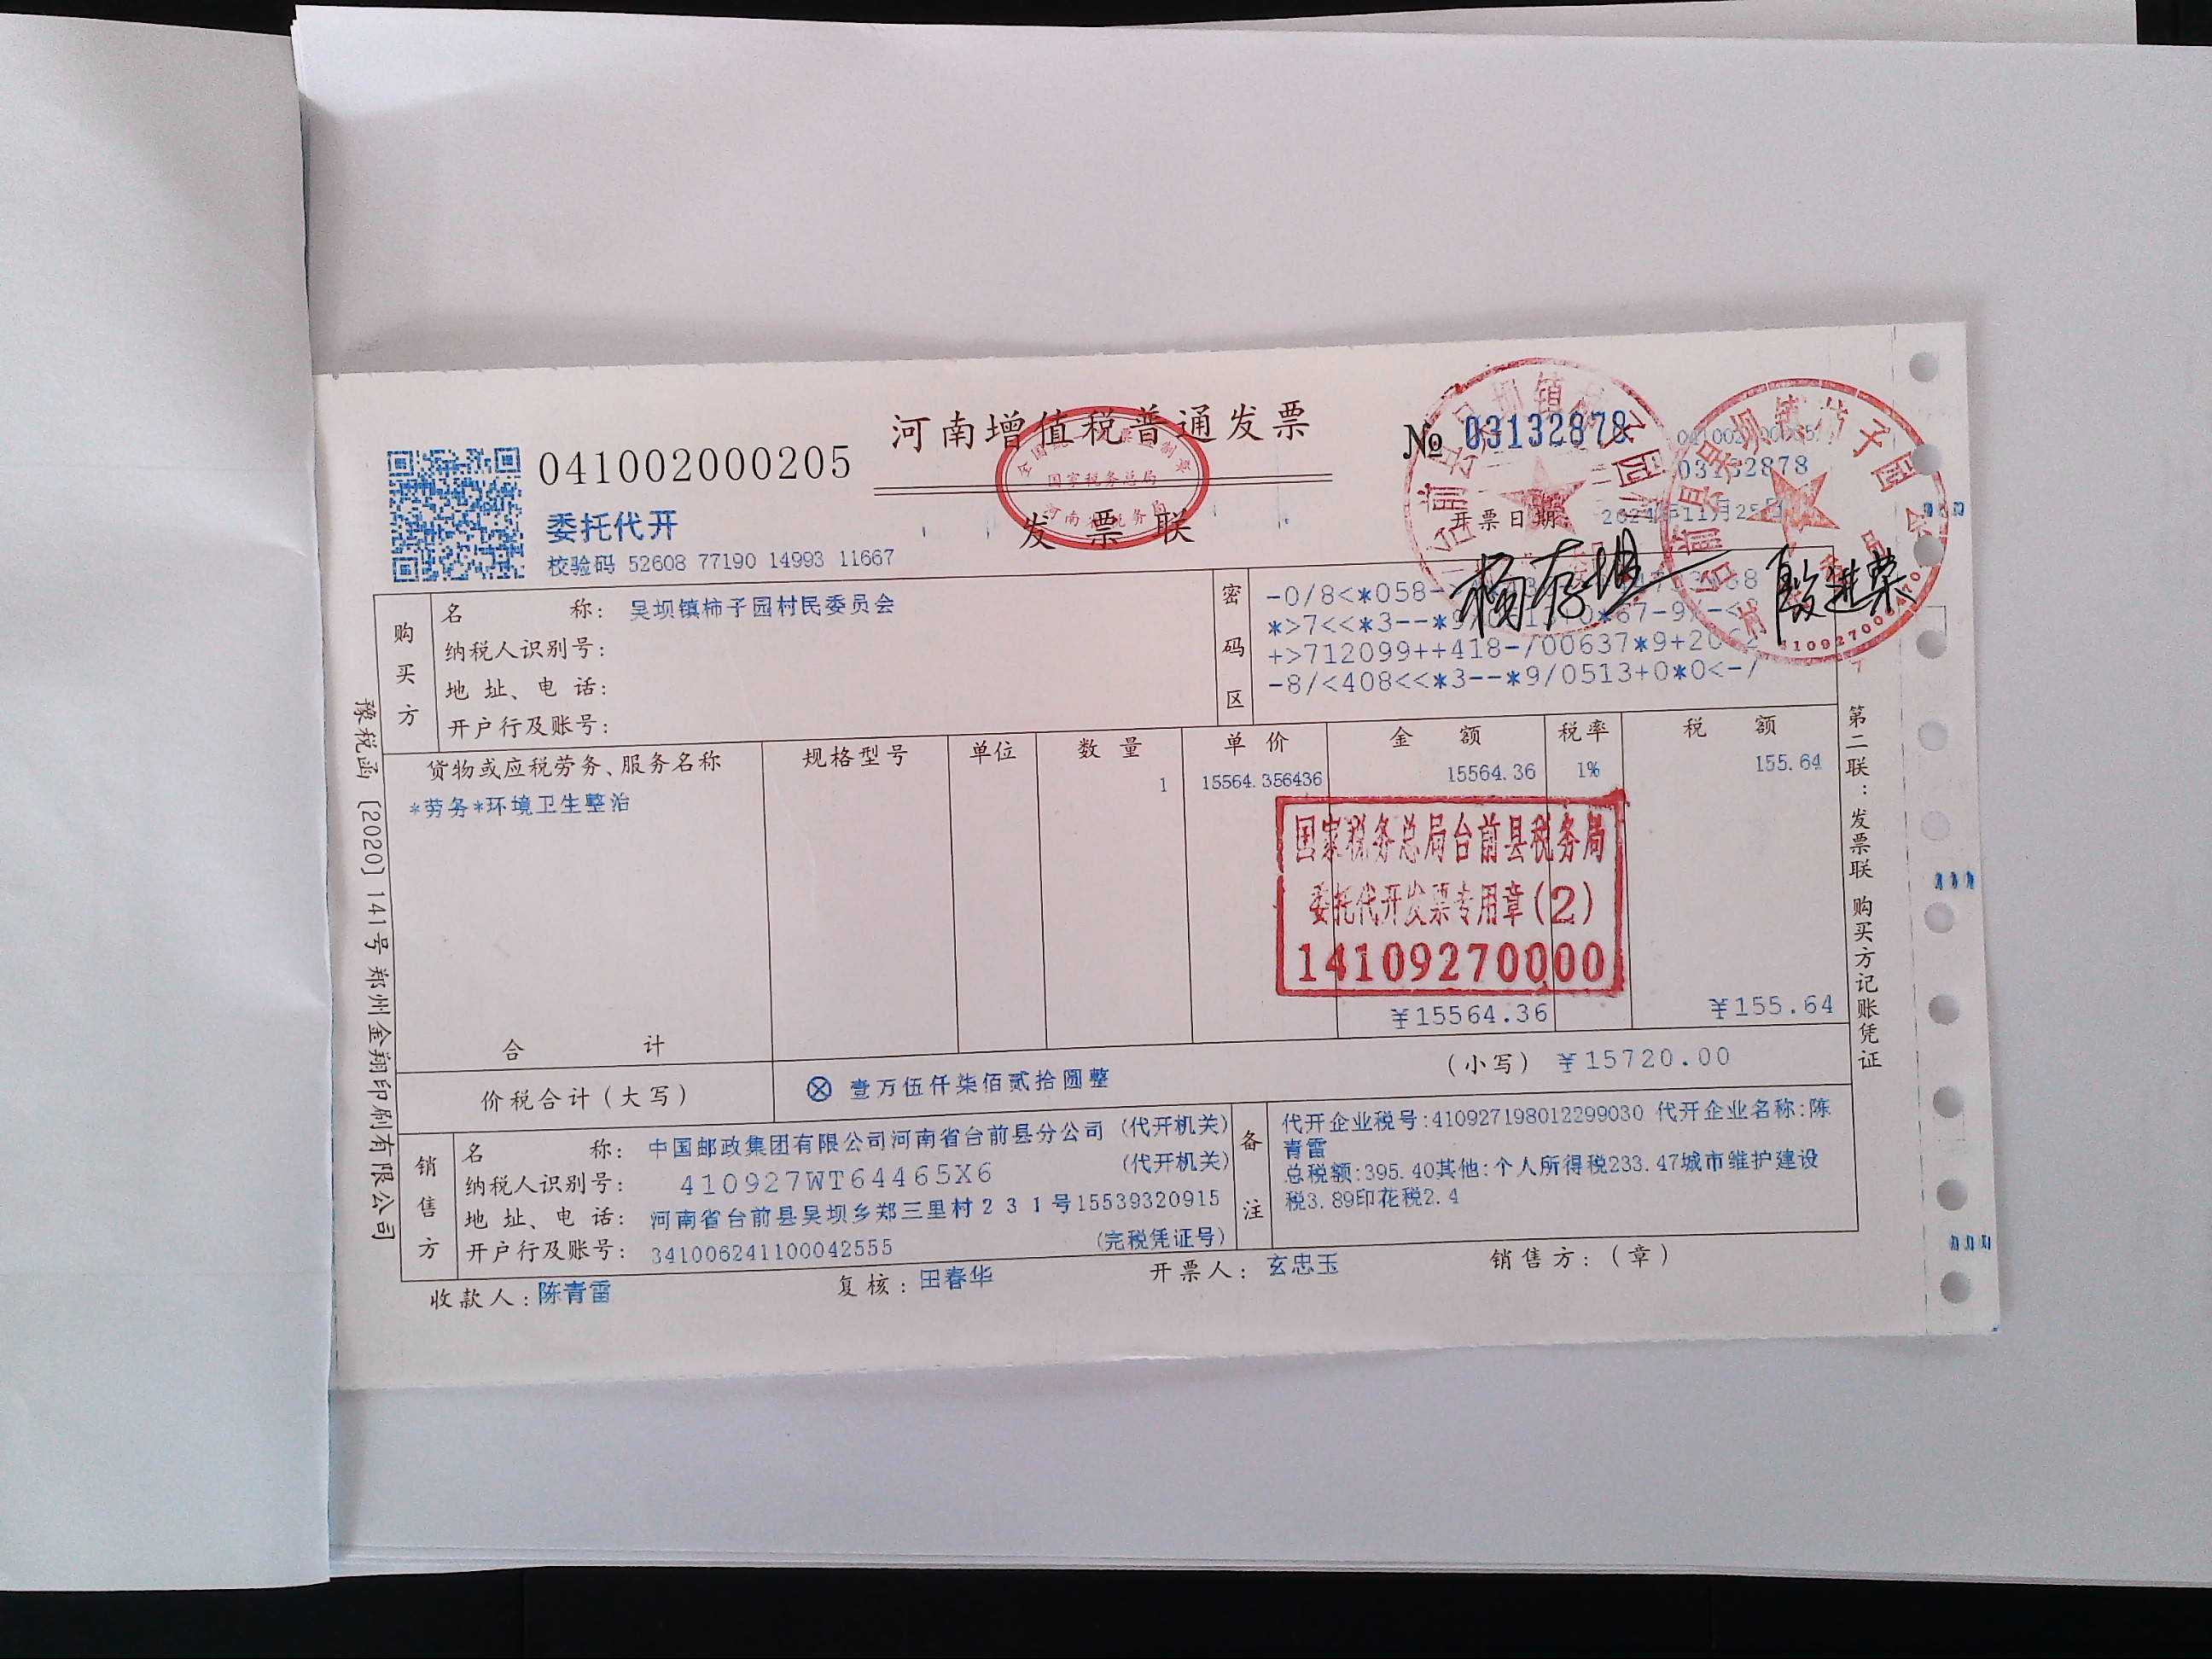 河南增值税普通发票
发票联
041002000205
委托代开
校验码 52608 77190 14993 11667
№ 03132878
03132878
开票日期: 2024年11月25日
购买方
名 称: 吴坝镇柿子园村民委员会
纳税人识别号:
地 址、电 话:
开户行及账号:
密码区
+>712099++418-/00637*9+20
-8/<408<<*3--*9/0513+0*0<-/
杨存坦
殷进荣
货物或应税劳务、服务名称 规格型号 单位 数 量 单 价 金 额 税率 税 额
*劳务*环境卫生整治 1 15564.356436 15564.36 1% 155.64
国家税务总局台前县税务局
委托代开发票专用章(2)
14109270000
合 计 ¥15564.36 ¥155.64
价税合计(大写) ⊗ 壹万伍仟柒佰贰拾圆整 (小写) ¥15720.00
销售方
名 称: 中国邮政集团有限公司河南省台前县分公司 (代开机关)
纳税人识别号: 410927WT64465X6 (代开机关)
地 址、电 话: 河南省台前县吴坝乡郑三里村231号15539320915
开户行及账号: 341006241100042555 (完税凭证号)
备注
代开企业税号:410927198012299030 代开企业名称:陈
青雷
总税额:395.40其他:个人所得税233.47城市维护建设
税3.89印花税2.4
收款人: 陈青雷 复核: 田春华 开票人: 玄忠玉 销售方:(章)
豫税函[2020]141号 郑州金翔印刷有限公司
第二联:发票联 购买方记账凭证